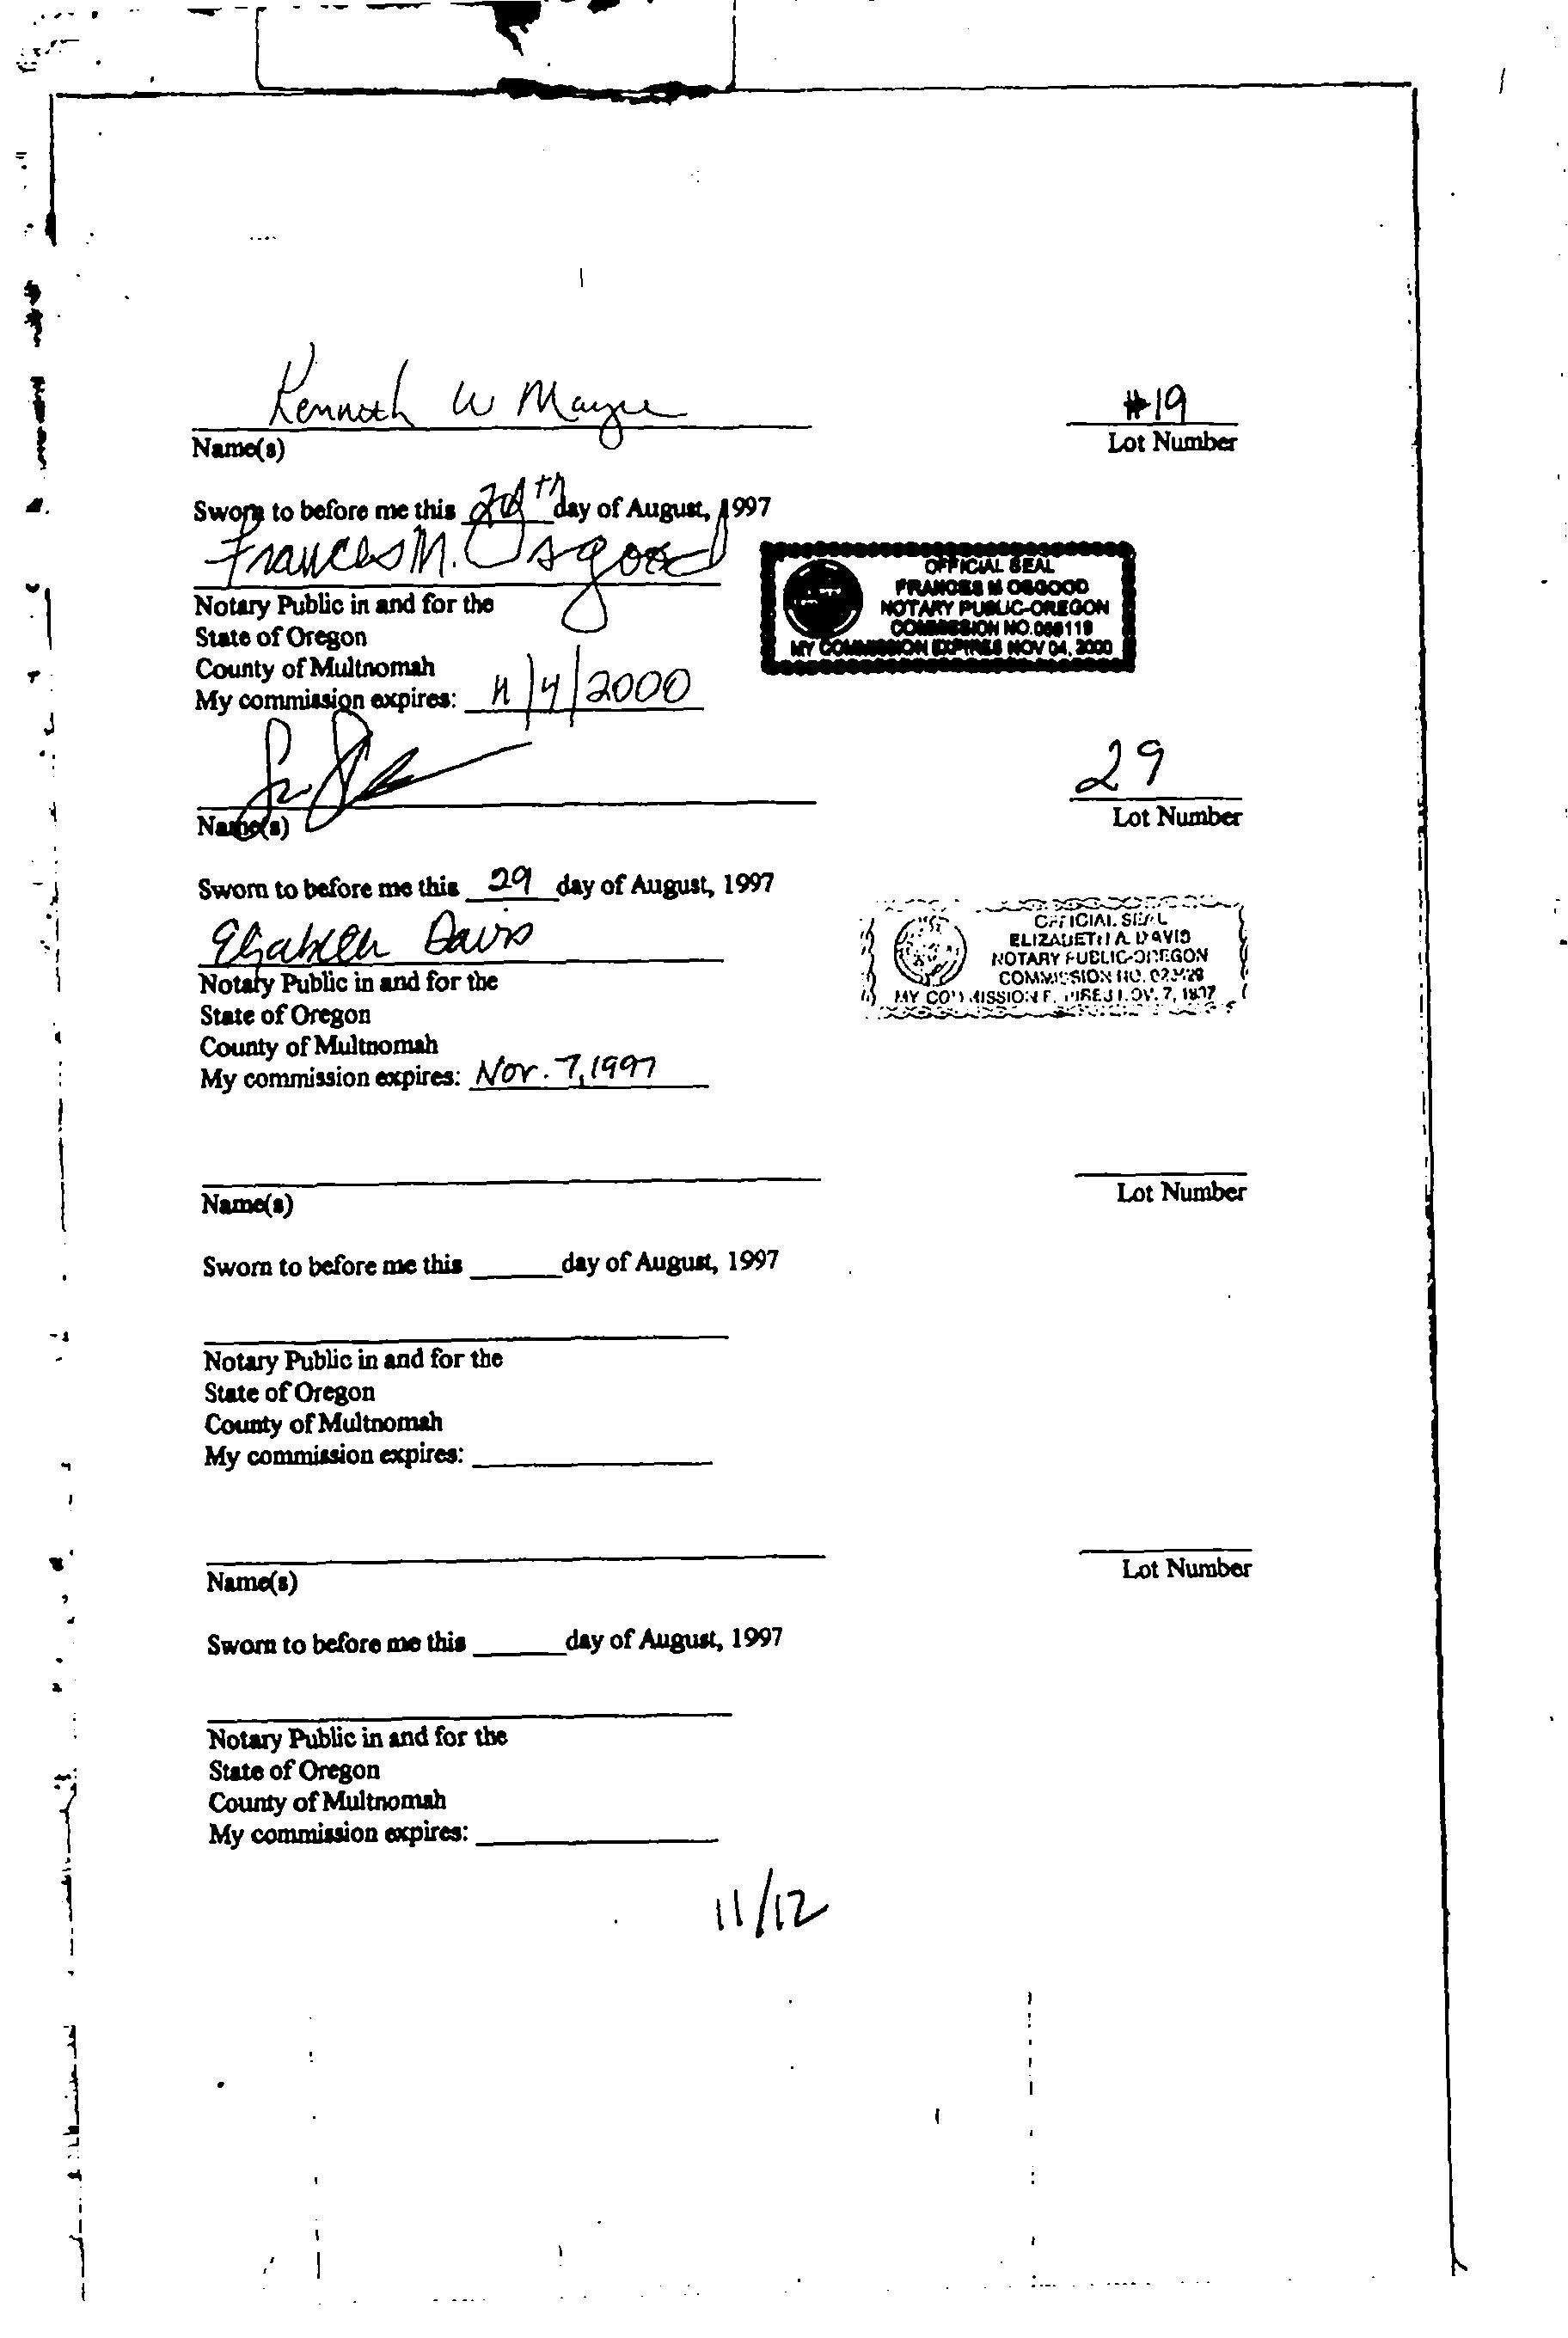 Kenneth W Mayne #19
Name(s) Lot Number
Sworn to before me this day of August, 1997
Frances M. Osgood
OFFICIAL SEAL
FRANCES M OSGOOD
Notary Public in and for the
NOTARY PUBLIC-OREGON
COMMISSION NO.
State of Oregon
MY COMMISSION EXPIRES NOV 04, 2000
County of Multnomah
My commission expires: 11/4/2000
29
Name(s) Lot Number
Sworn to before me this 29 day of August, 1997
Elizabeth Davis
OFFICIAL SEAL
ELIZABETH A. DAVIS
NOTARY PUBLIC-OREGON
Notary Public in and for the
COMMISSION NO.
MY COMMISSION EXPIRES NOV. 7, 1997
State of Oregon
County of Multnomah
My commission expires: Nov. 7, 1997
Name(s) Lot Number
Sworn to before me this ______ day of August, 1997
Notary Public in and for the
State of Oregon
County of Multnomah
My commission expires: ______
Name(s) Lot Number
Sworn to before me this ______ day of August, 1997
Notary Public in and for the
State of Oregon
County of Multnomah
My commission expires: ______
11/12